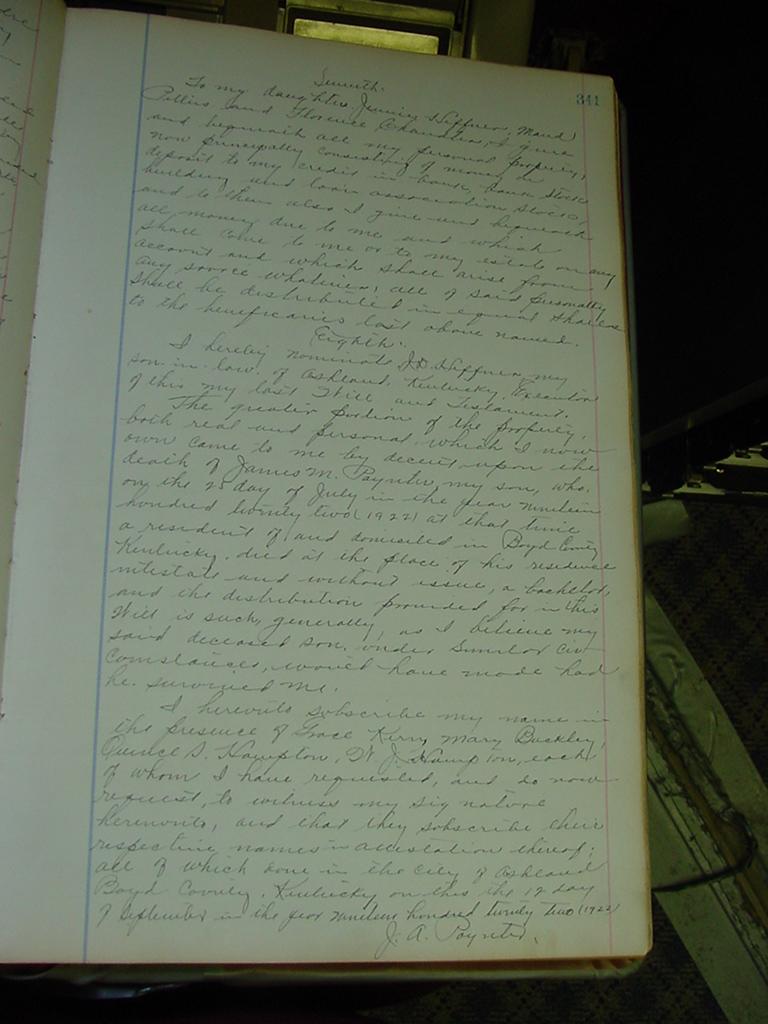 341
Seventh.
To my daughters Jennie Hiffner, Maud
and Florence I give
and bequeath all my personal property,
now principally consisting of money on
deposit to my credit in bank, bank stock
building and loan association stock,
and to them also I give and bequeath
all money due to me and which
shall come to me or to my estate on any
account and which shall arise from
any source whatever; all of said personalty
shall be distributed in equal shares
to the beneficiaries last above named.
Eighth.
I hereby nominate J.D. Hiffner my
son-in-law, of Ashland, Kentucky, Executor
of this my last Will and Testament.
The greater portion of the property,
both real and personal, which I now
own came to me by decent upon the
death of James M. Paynter, my son, who,
on the 25 day of July in the year nineteen
hundred twenty two (1922) at that time
a resident of and domiciled in Boyd County
Kentucky, died at the place of his residence
intestate and without issue, a bachelor,
and the distribution provided for in this
Will is such, generally, as I believe my
said deceased son, under similar cir-
comstances, would have made had
he survived me.
I hereunto subscribe my name in
the presence of Grace Kirry, Mary Buckley,
S. Hampton, W. J. Hampton, each
of whom I have requested, and do now
request, to witness my signature
hereunto, and that they subscribe their
respective names in attestation thereof;
all of which done in the City of Ashland
Boyd County, Kentucky on this the 12 day
of September in the year nineteen hundred twenty two (1922)
J. A. Paynter.